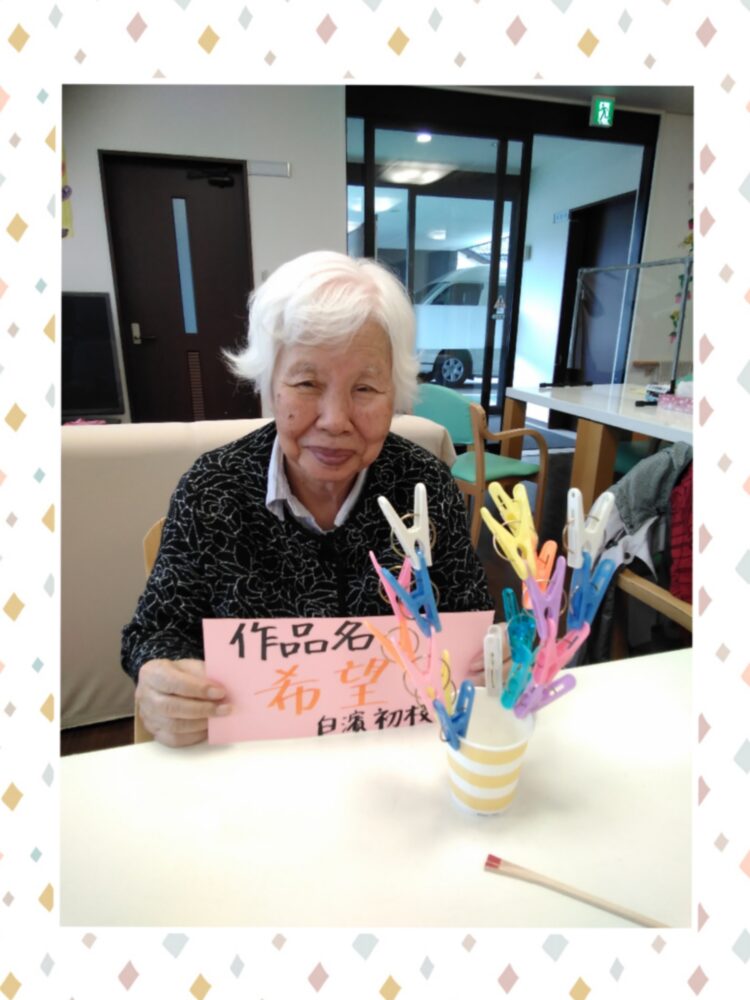 作品名
希望
白濱初枝